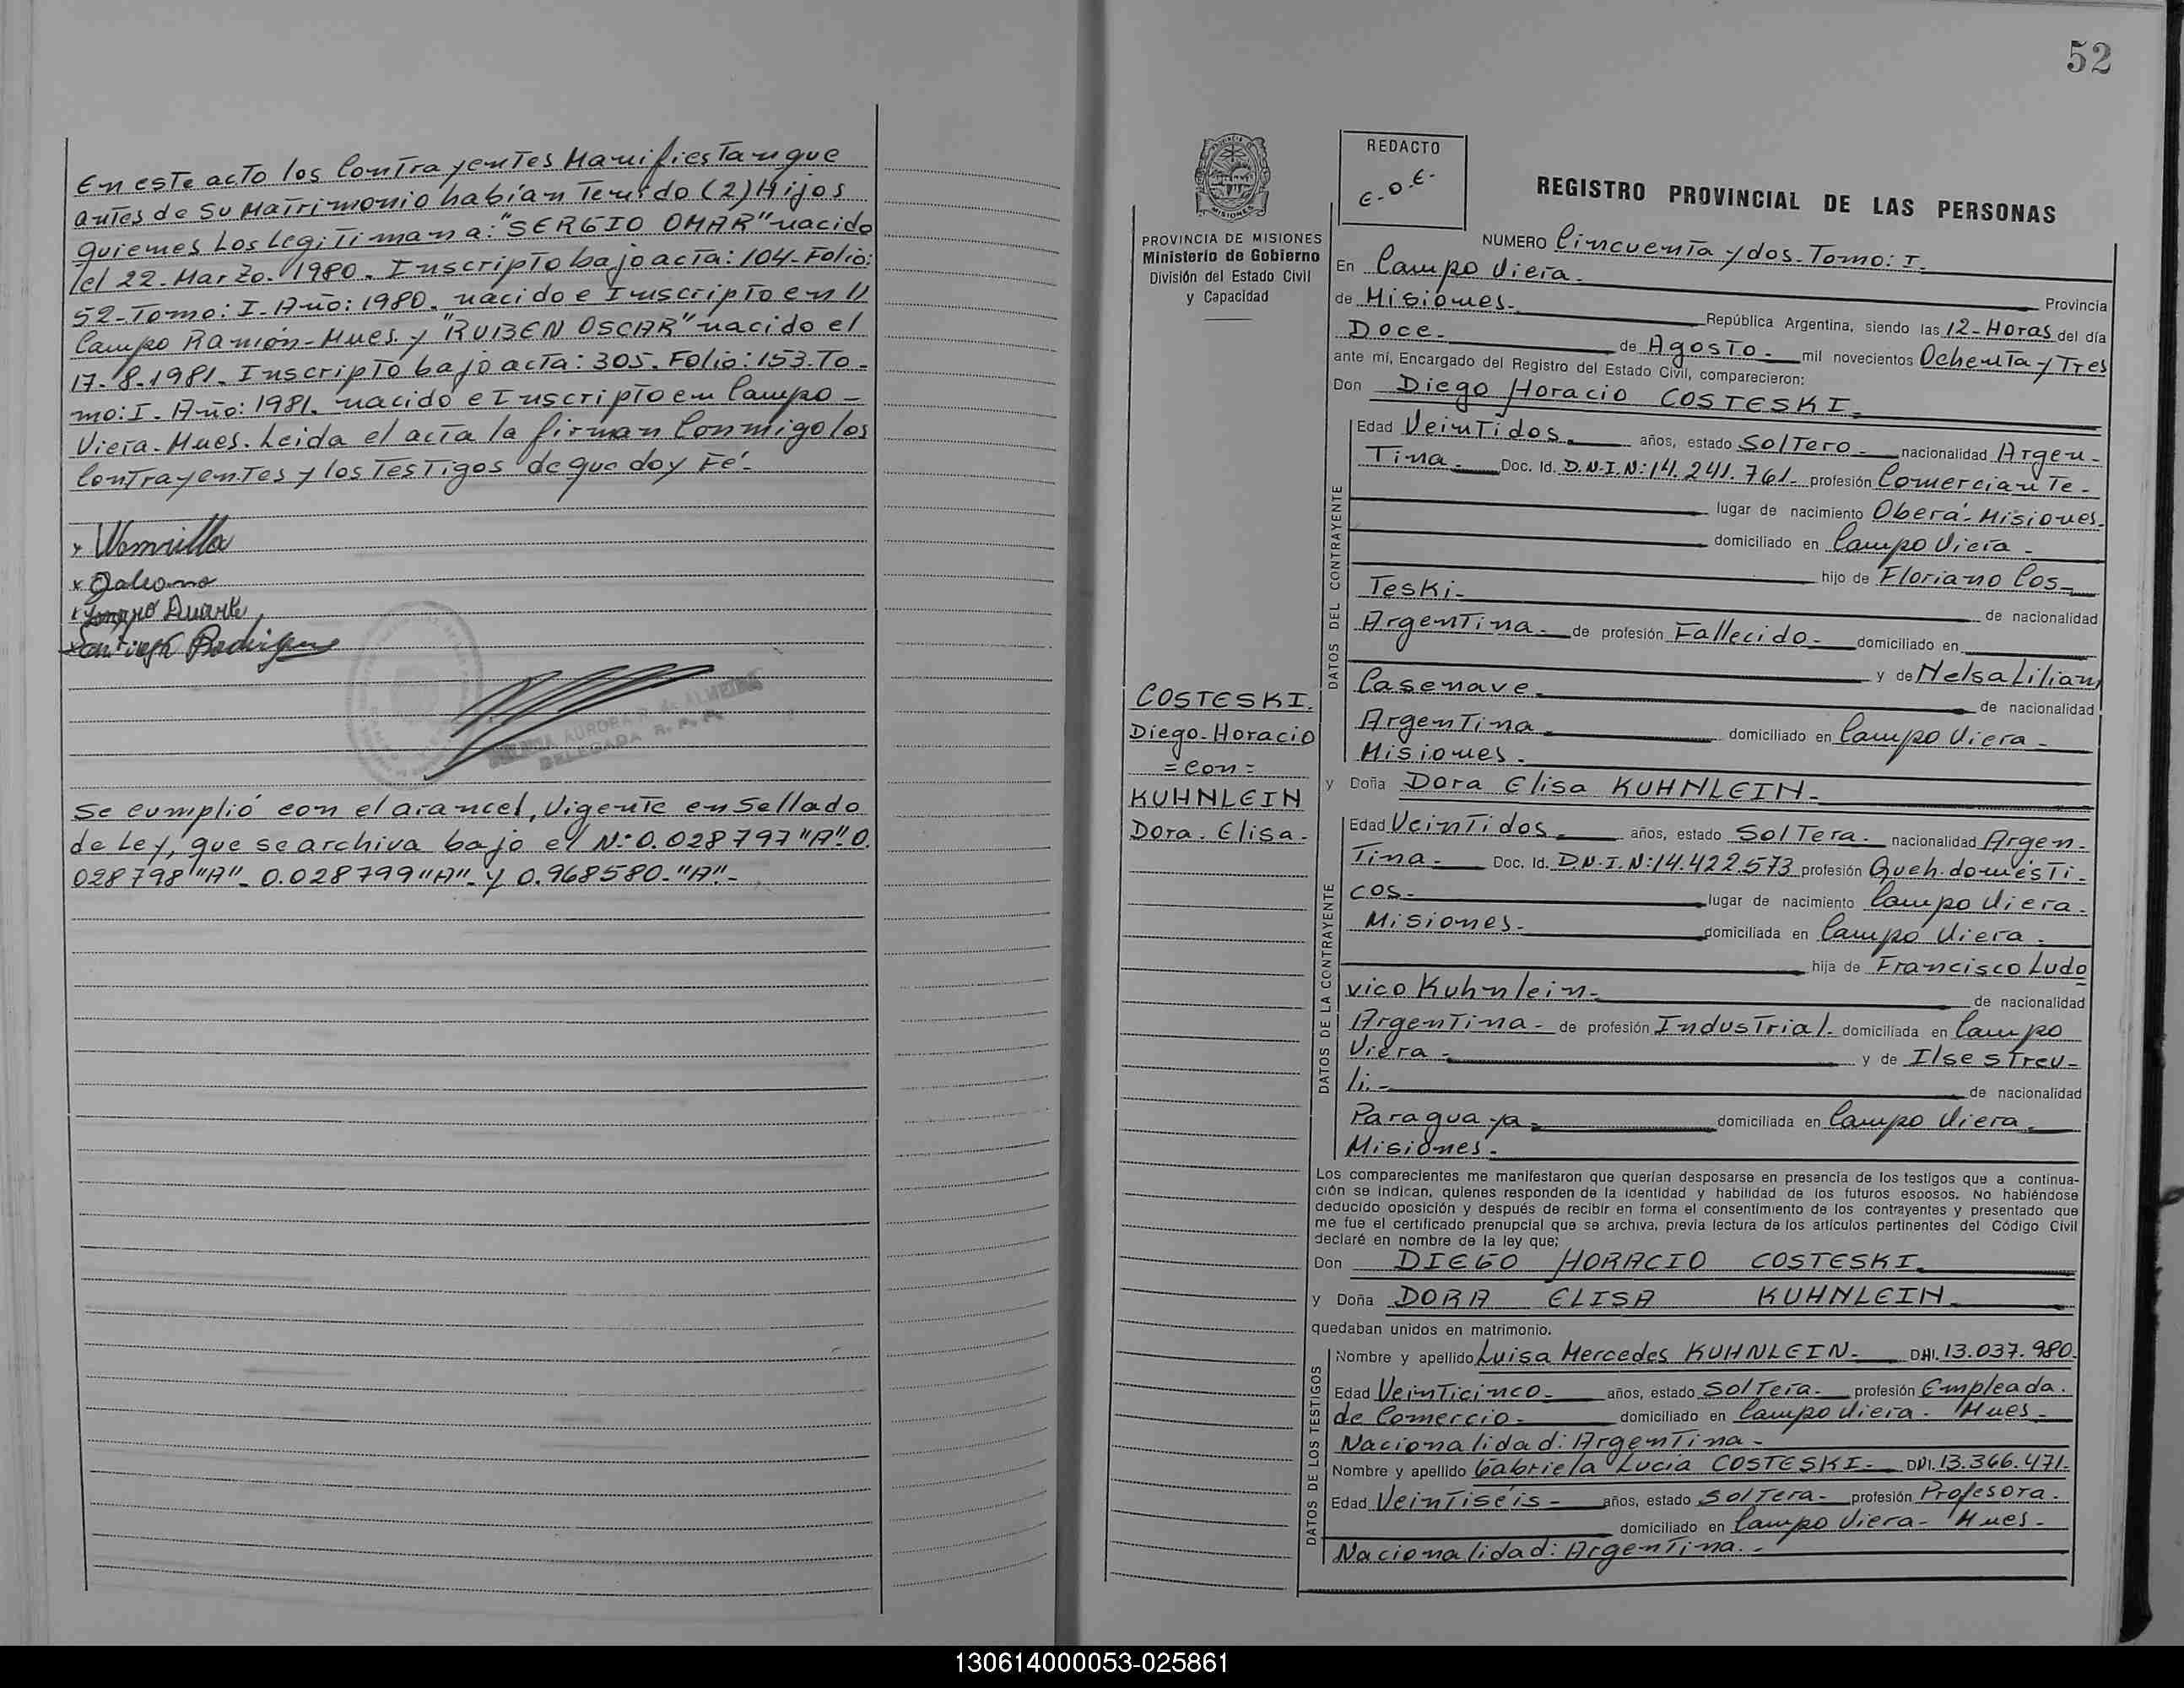 En este acto los Contrayentes Manifiestan que
antes de Su Matrimonio habían Tenido (2) Hijos
quienes Los Legitiman a: "SERGIO OMAR" nacido
el 22. Marzo. 1980. Inscripto bajo acta: 104- Folio:
52-Tomo: I-Año: 1980. nacido e Inscripto en //
Campo Ramón-Mnes. y "RUBEN OSCAR" nacido el
17-8-1981. Inscripto bajo acta: 305. Folio: 153. To-
mo: I. Año: 1981. nacido e Inscripto en Campo-
Viera. Mnes. Leida el acta la firman Conmigo los
Contrayentes y los Testigos de que doy Fé.-
x
x
x Duarte
x Rodriguez
AURORA R. de ALMEIDA
DELEGADA R. P. P.
Se cumplió con el arancel, Vigente en Sellado
de Ley, que se archiva bajo el N:0.028797"A".0.
028798"A"-0.028799"A"-y 0.968580-"A"-
52
PROVINCIA DE MISIONES
Ministerio de Gobierno
División del Estado Civil
y Capacidad
COSTESKI.
Diego-Horacio
=con=
KUHNLEIN
Dora. Elisa.
REDACTO
E.O.E.
REGISTRO PROVINCIAL DE LAS PERSONAS
NUMERO Cincuenta y dos. Tomo: I.
En Campo Viera.
Provincia
de Misiones.
República Argentina, siendo las 12-Horas del día
Doce- de Agosto. mil novecientos Ochenta y Tres
ante mí, Encargado del Registro del Estado Civil, comparecieron:
Don Diego Horacio COSTESKI.
DATOS DEL CONTRAYENTE
Edad Veintidos. años, estado Soltero- nacionalidad Argen-
tina. Doc. Id. D.N.I.N:14.241.761- profesión Comerciante-
lugar de nacimiento Oberá-Misiones.
domiciliado en Campo Viera-
hijo de Floriano Cos-
Teski- de nacionalidad
Argentina- de profesión Fallecido- domiciliado en
y de Nelsa Lilian
Casenave- de nacionalidad
Argentina domiciliado en Campo Viera-
Misiones.
y Doña Dora Elisa KUHNLEIN-
DATOS DE LA CONTRAYENTE
Edad Veintidos. años, estado Soltera- nacionalidad Argen-
Tina- Doc. Id. D.N.I.N:14.422.573 profesión Queh.domésti-
cos- lugar de nacimiento Campo Viera-
Misiones. domiciliada en Campo Viera.
hija de Francisco Ludo
vico Kuhnlein- de nacionalidad
Argentina- de profesión Industrial- domiciliada en Campo
Viera- y de Ilse Streu-
li.- de nacionalidad
Paraguaya- domiciliada en Campo Viera-
Misiones.
Los comparecientes me manifestaron que querían desposarse en presencia de los testigos que a continua-
ción se indican, quienes responden de la identidad y habilidad de los futuros esposos. No habiéndose
deducido oposición y después de recibir en forma el consentimiento de los contrayentes y presentado que
me fue el certificado prenupcial que se archiva, previa lectura de los artículos pertinentes del Código Civil
declaré en nombre de la ley que;
Don DIEGO HORACIO COSTESKI.
y Doña DORA ELISA KUHNLEIN-
quedaban unidos en matrimonio.
DATOS DE LOS TESTIGOS
Nombre y apellido Luisa Mercedes KUHNLEIN- DNI. 13.037.980.
Edad Veinticinco- años, estado Soltera- profesión Empleada.
de Comercio- domiciliado en Campo Viera- Mnes-
Nacionalidad: Argentina-
Nombre y apellido Gabriela Lucia COSTESKI- DNI. 13.366.471.
Edad Veintiseis- años, estado Soltera- profesión Profesora.
domiciliado en Campo Viera- Mnes-
Nacionalidad: Argentina.-
130614000053-025861